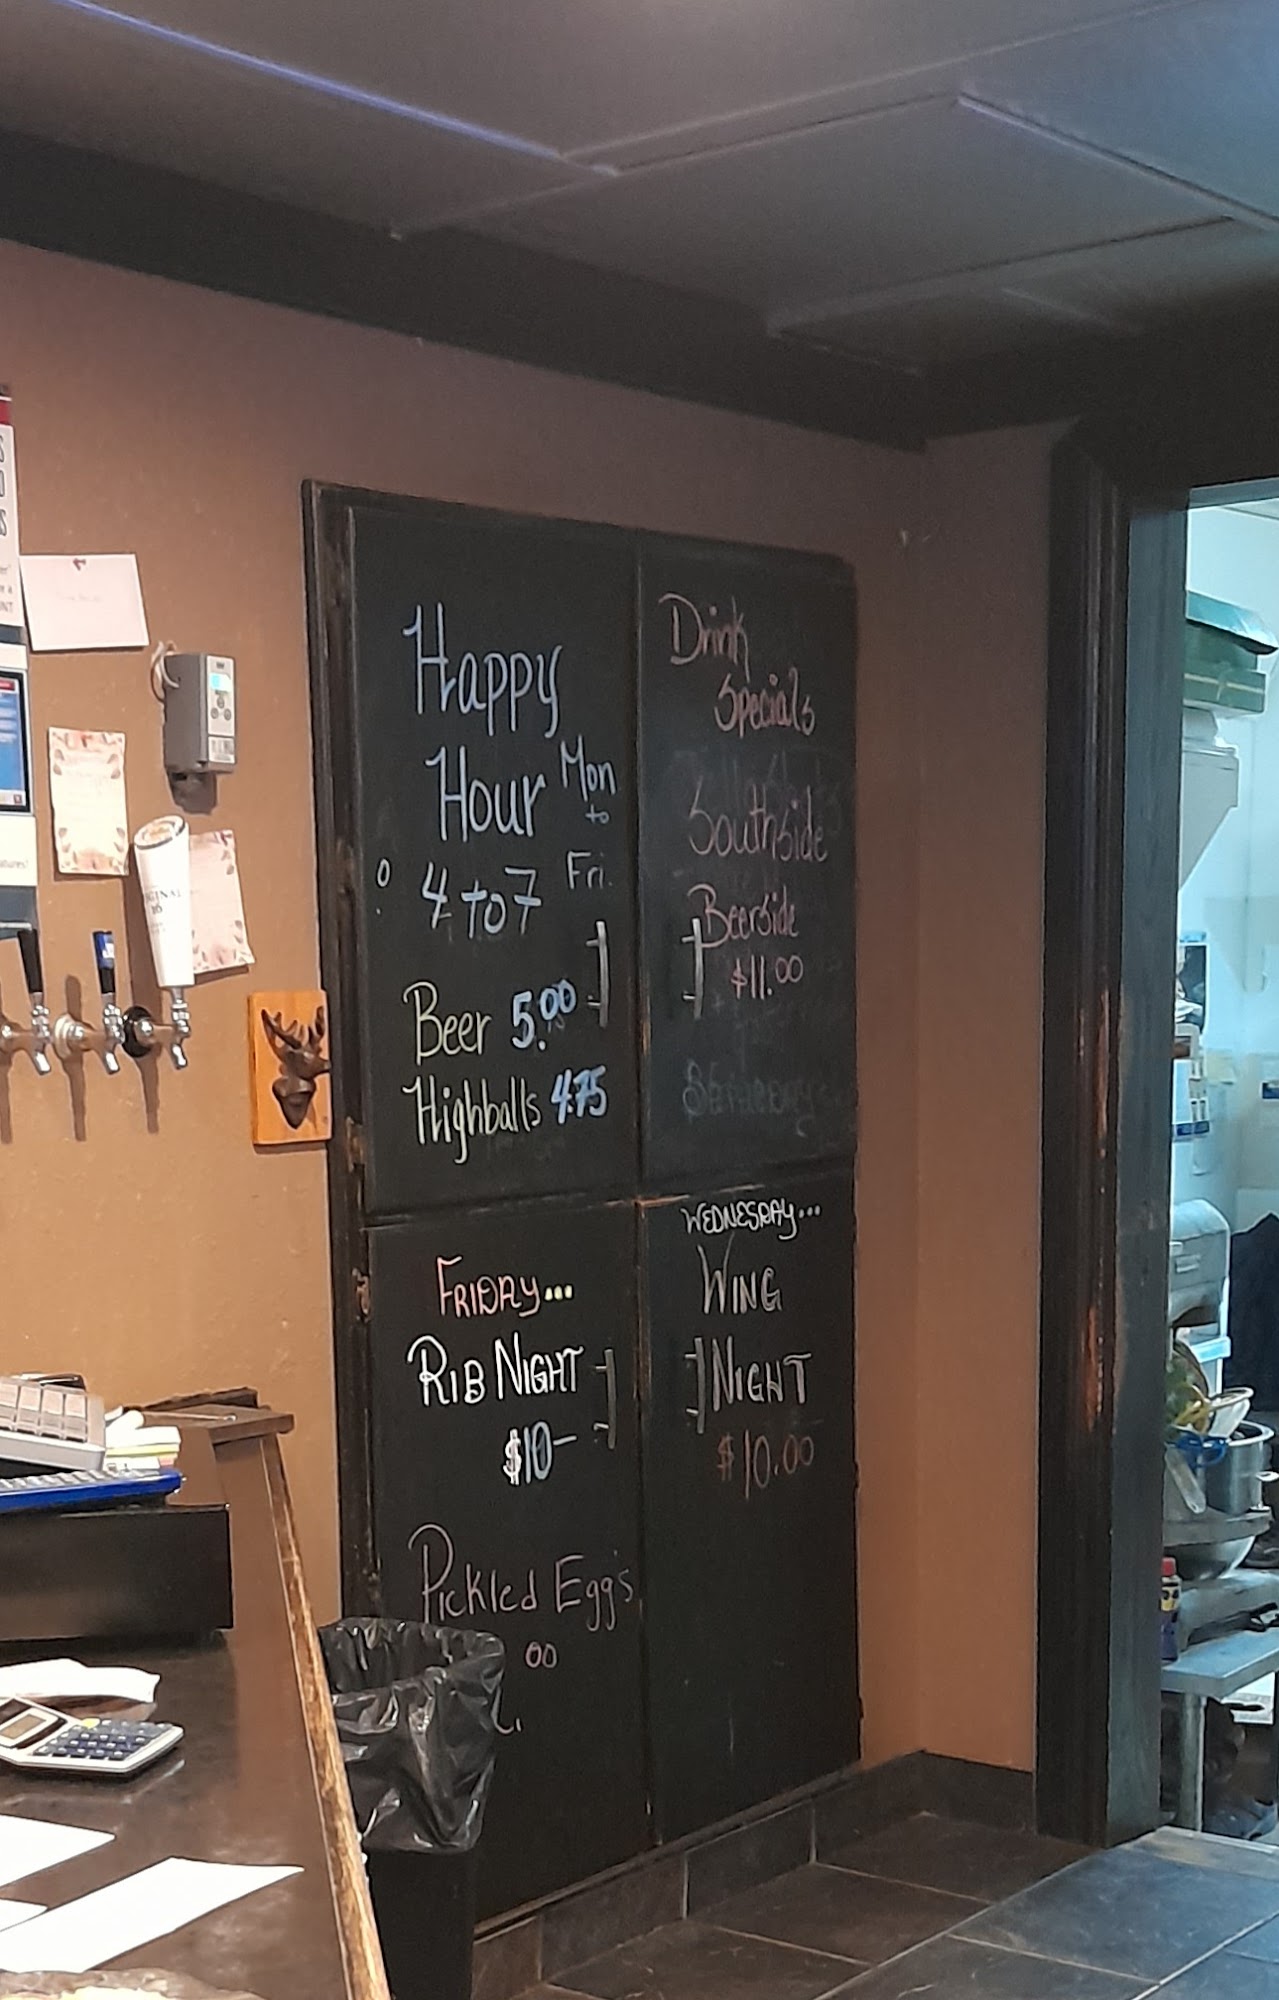 Happy
Hour Mon
to
4 to 7 Fri.
Beer 5.00
Highballs 4.75
Drink
Specials
Southside
Beerside
$11.00
FRIDAY...
RIB NIGHT
$10-
Pickled Egg's
00
WEDNESDAY...
WING
NIGHT
$10.00